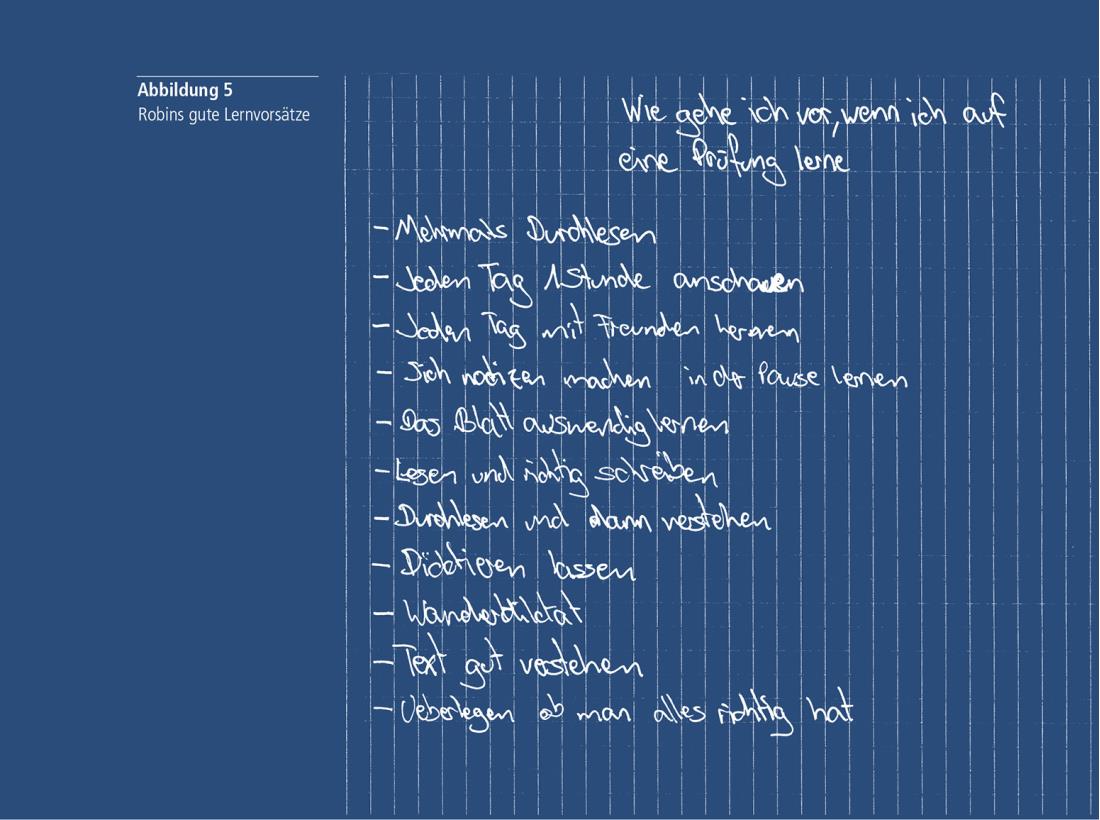 Abbildung 5
Robins gute Lernvorsätze
Wie gehe ich vor, wenn ich auf
eine Prüfung lerne
- Mehrmals Durchlesen
- Jeden Tag 1 Stunde anschauen
- Jeden Tag mit Freunden
- Sich notizen machen in der Pause lernen
- Das Blatt auswendig lernen
- Lesen und richtig schreiben
- Durchlesen und dann verstehen
- Dicktieren lassen
- Wanderdiktat
- Text gut verstehen
- Ueberlegen ob man alles richtig hat